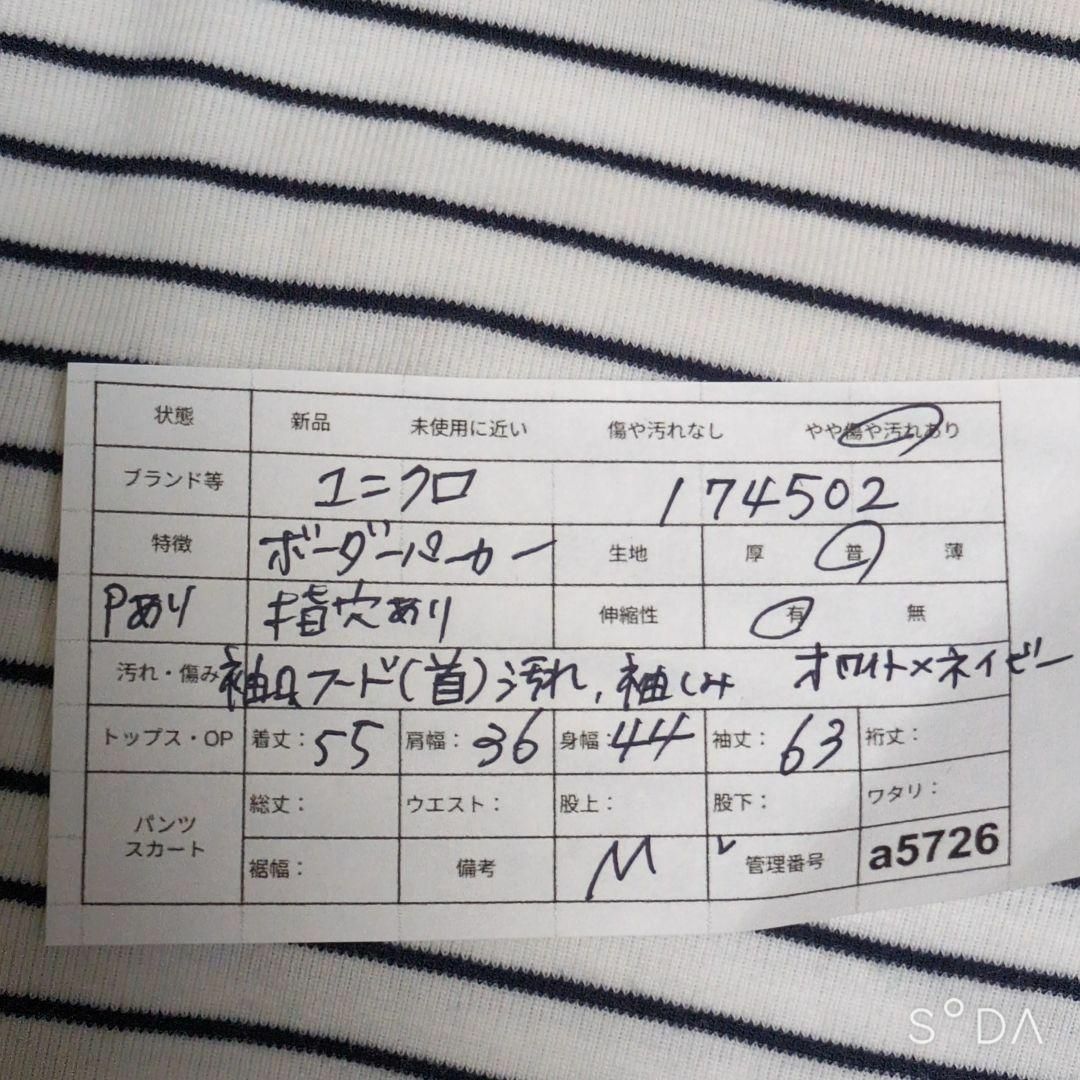 状態 新品 未使用に近い 傷や汚れなし やや傷や汚れあり
ブランド等 ユニクロ 174502
特徴 ボーダーパーカー 生地 厚 普 薄
Pあり 指穴あり 伸縮性 有 無
汚れ・傷み 袖口フード(首)汚れ,袖しみ オワイト×ネイビー
トップス・OP 着丈: 55 肩幅: 36 身幅: 44 袖丈: 63 裄丈:
パンツ スカート 総丈: ウエスト: 股上: 股下: ワタリ:
裾幅: 備考 M 管理番号 a5726
SODA